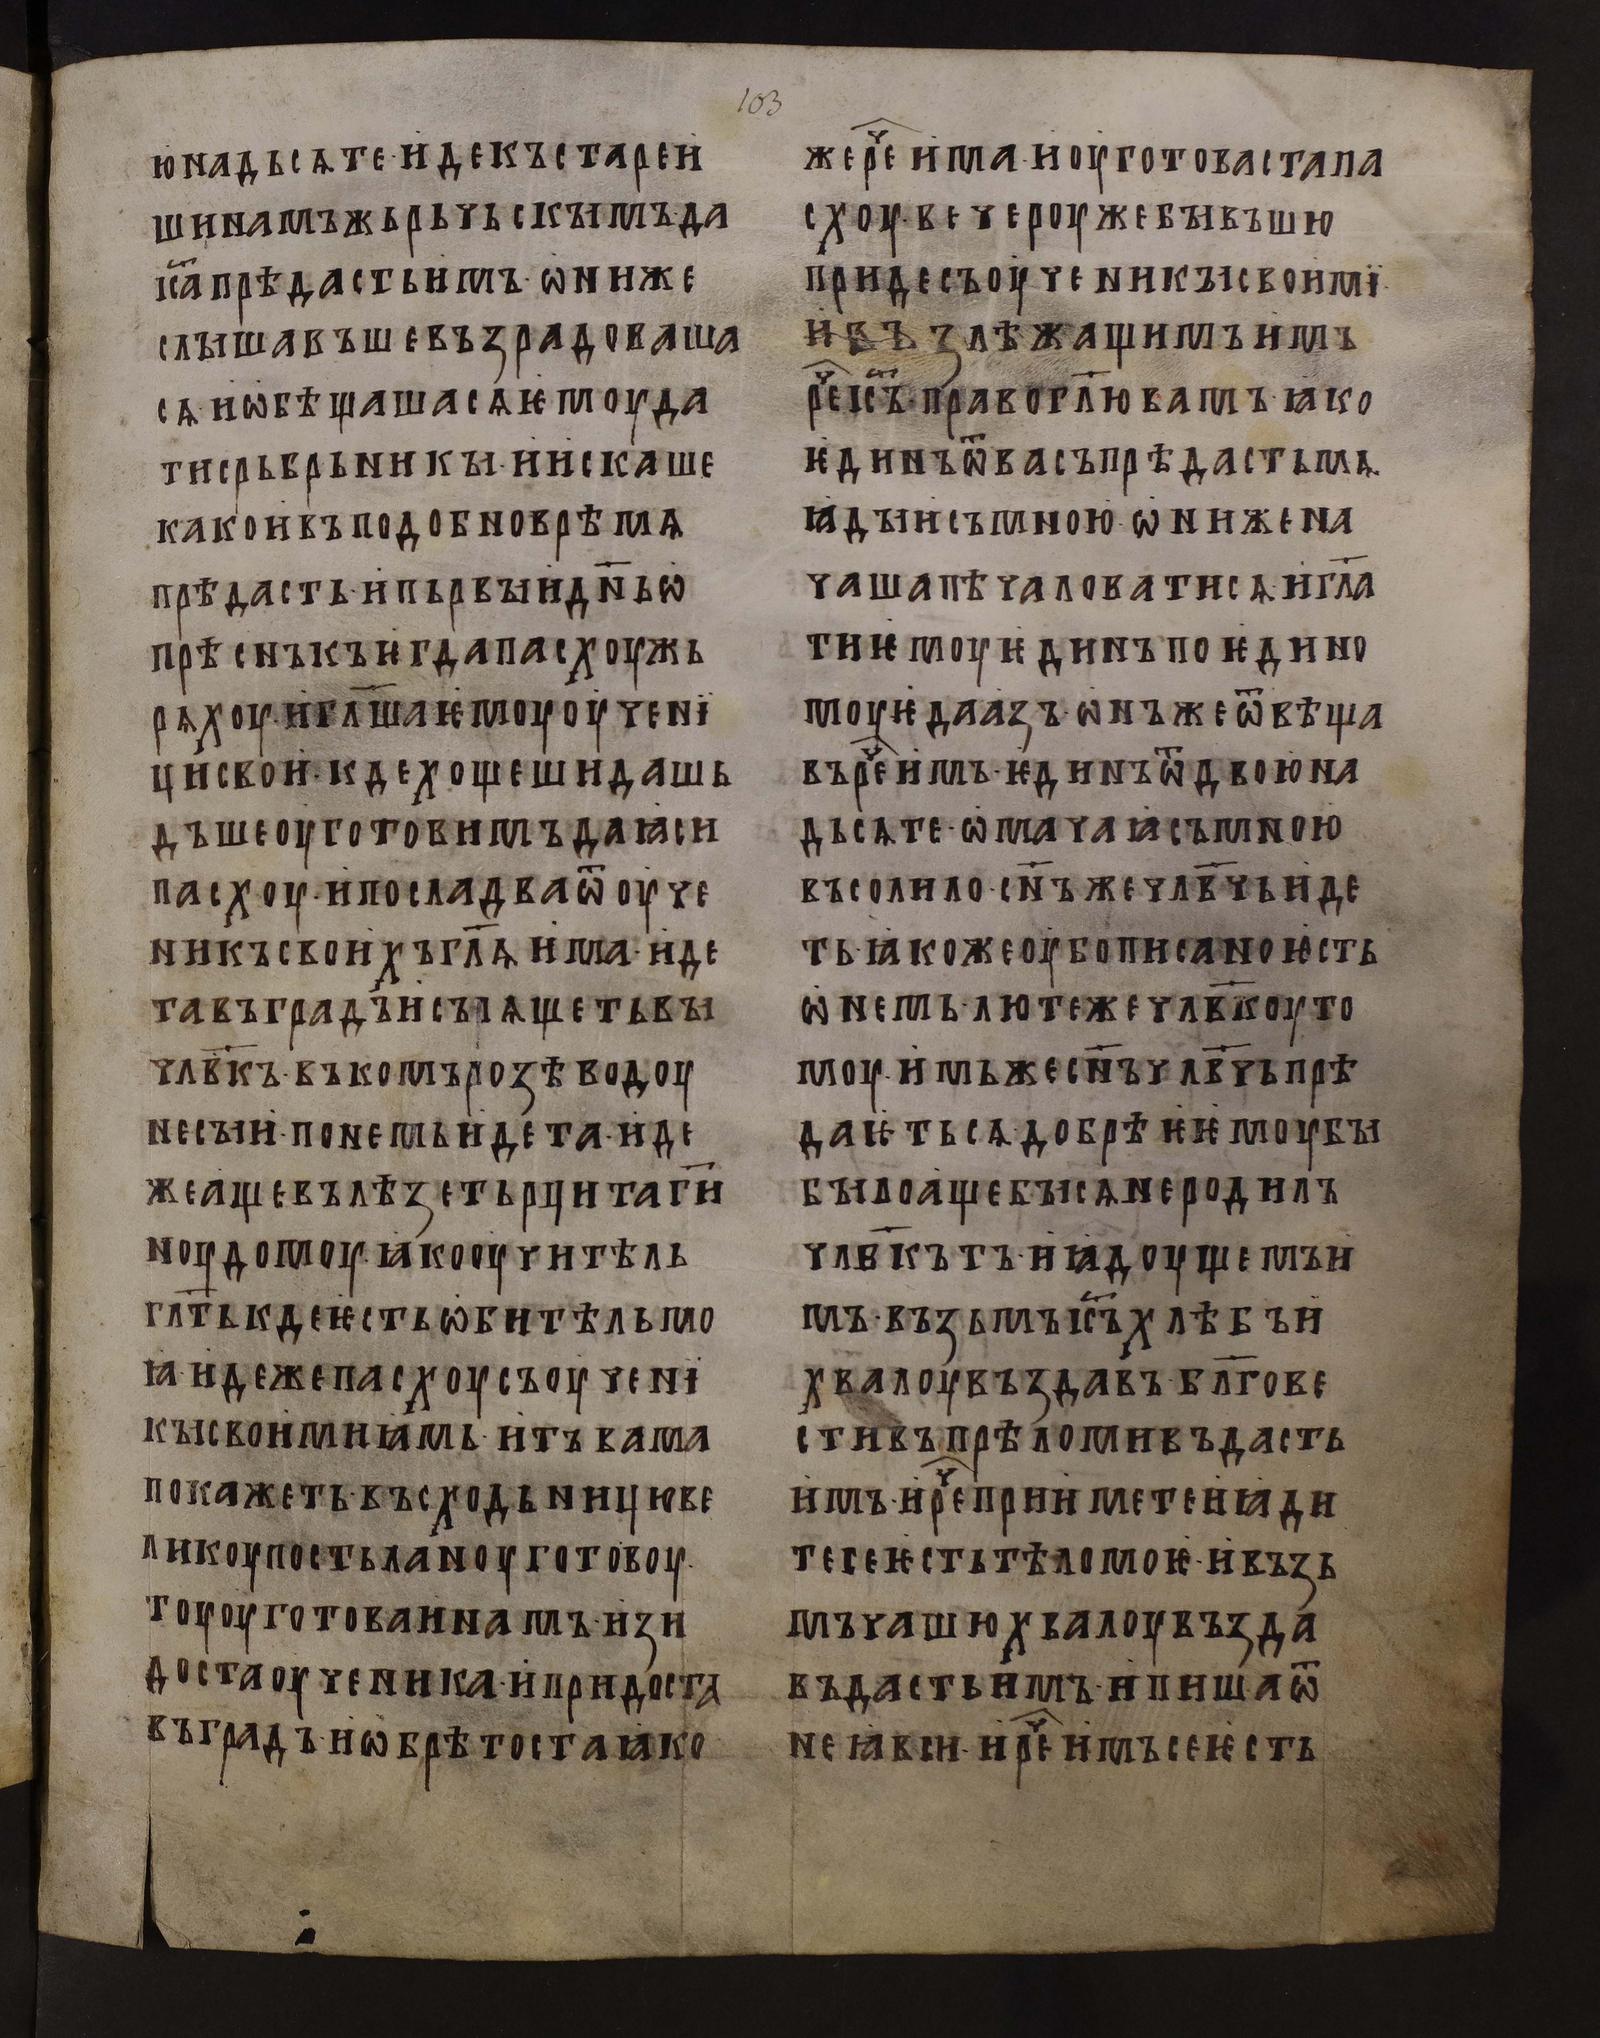 103
юнадьсѧте·идекъстареи
шинамъжьрьчьскꙑмъ·да
і҃сапрѣдастьимъ·ѡниже
слꙑшавъшевъзрадоваша
сѧ·иѡбѣщашасѧѥмоуда
тисрьбрьникꙑ·иискаше
какоивъподобноврѣмѧ
прѣдасть·ипьрвꙑид҃ньѡ
прѣснъкъѥгдапасхоужь
рѧхоу·игл҃шаѥмоуоучені
цисвои·кдехощешидашь
дъшеоуготовимъдаꙗси
пасхоу·ипосладваѿоуче
никъсвоихъгл҃ѧима·иде
тавъградъисърѧщетьвꙑ
чл҃вкъ·въкомърозѣводоу
несꙑи·понемьидета·иде
жеащевълѣзетьрцитаг҃и
ноудомоу·ꙗкооучитѣль
гл҃тькдеѥстьѡбитѣльмо
ꙗ·идежепасхоусъоучені
кꙑсвоимиꙗмь·итъвама
покажеть·въсходьницюве
ликоупостьланоуготовоу·
тоуоуготоваинамъ·изи
достаоученика·ипридоста
въградъ·иѡбрѣтостаꙗко
жерⷱ҇еима·иоуготовастапа
схоу·вечероужебꙑвъшю
придесъоученикꙑсвоимі·
ивъзлѣжащимъимъ
рⷱ҇еі҃съ·правогл҃ювамъ·ꙗко
ѥдинъѿвасъпрѣдастьмѧ·
ꙗдꙑисъмною·ѡнижена
чашапѣчаловатисѧ·игл҃а
тиѥмоуѥдинъпоѥдино
моуѥдаазъ·ѡнъжеѿвѣща
върⷱ҇еимъ·ѥдинъѿдвоюна
дьсѧте·ѡмачаꙗсъмною
въсолило·сн҃ъжечл҃вчьиде
ть·ꙗкожеоубописаноѥсть
ѡнемь·лютежечл҃вкоуто
моу·имьжесн҃ъчл҃вчьпрѣ
даѥтьсѧ·добрѣѥѥмоубꙑ
бꙑлоащебꙑсѧнеродилъ
чл҃вкътъ·иꙗдоущемъи
мъ·възьмъі҃съхлѣбъи
хвалоувъздавъ·бл҃гове
стивъпрѣломивъдасть
имъ·ирⷱ҇еприиметеиꙗди
тесеѥстьтѣломоѥ·ивъзь
мъчашюхвалоувъзда
въдастьимъ·ипишаѿ
неꙗвси·ирⷱ҇еимъсеѥсть